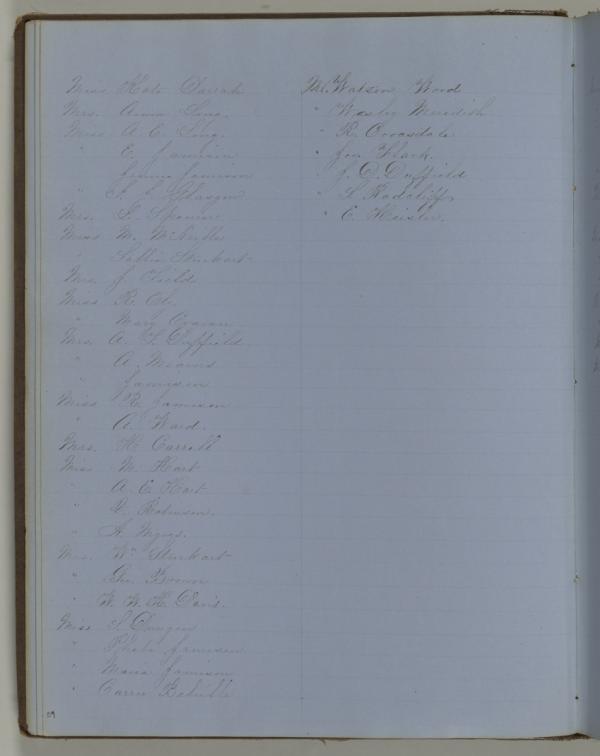 Miss Kate Darrah
Mrs. Anna Long.
Miss A. C. Long.
" E. Jamison
Jennie Jamison
" S. E. Glasgow
Mrs. S. Spencer
Miss M. McNeille
" Sallie Stuckart
Mrs. J. Fields
Miss R. Ott.
" Mary Craven
Mrs. A. S. Duffield
" A. Mearns
" Jamison
Miss R. Jamison
" A. Ward.
Mrs. H. Carrell
Miss M. Hart
" A. E. Hart
" Robinson.
" A.
Mrs. Wm. Stuckart
" Geo. Brown
" W. W. H. Davis.
Miss S. Dungan
" Phebe Jamison
" Maria Jamison
" Carrie
Mr. Watson Ward
" Wesley Meredith
" R. Croasdale
" Jon Flack.
" J. D. Duffield
" S. Radcliff,
" C. Heisler.